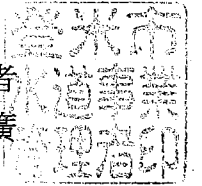 者
廣
登米市
水道事業
管理者印